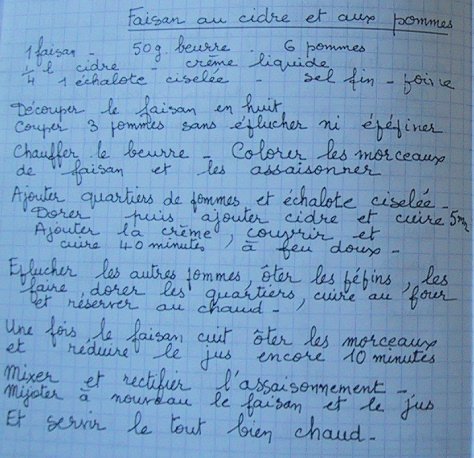 Faisan au cidre et aux pommes
1 faisan - 50g beurre. 6 pommes
1/4 l cidre - crème liquide
1 échalote ciselée - sel fin - poivre
Découper le faisan en huit
Couper 3 pommes sans éplucher ni épépiner
Chauffer le beurre - Colorer les morceaux
de faisan et les assaisonner
Ajouter quartiers de pommes et échalote ciselée -
Dorer puis ajouter cidre et cuire 5mn
Ajouter la crème, couvrir et
cuire 40 minutes, à feu doux -
Eplucher les autres pommes, ôter les pépins, les
faire dorer les quartiers, cuire au four
et réserver au chaud -
Une fois le faisan cuit ôter les morceaux
et réduire le jus encore 10 minutes
Mixer et rectifier l'assaisonnement -
Mijoter à nouveau le faisan et le jus
Et servir le tout bien chaud -